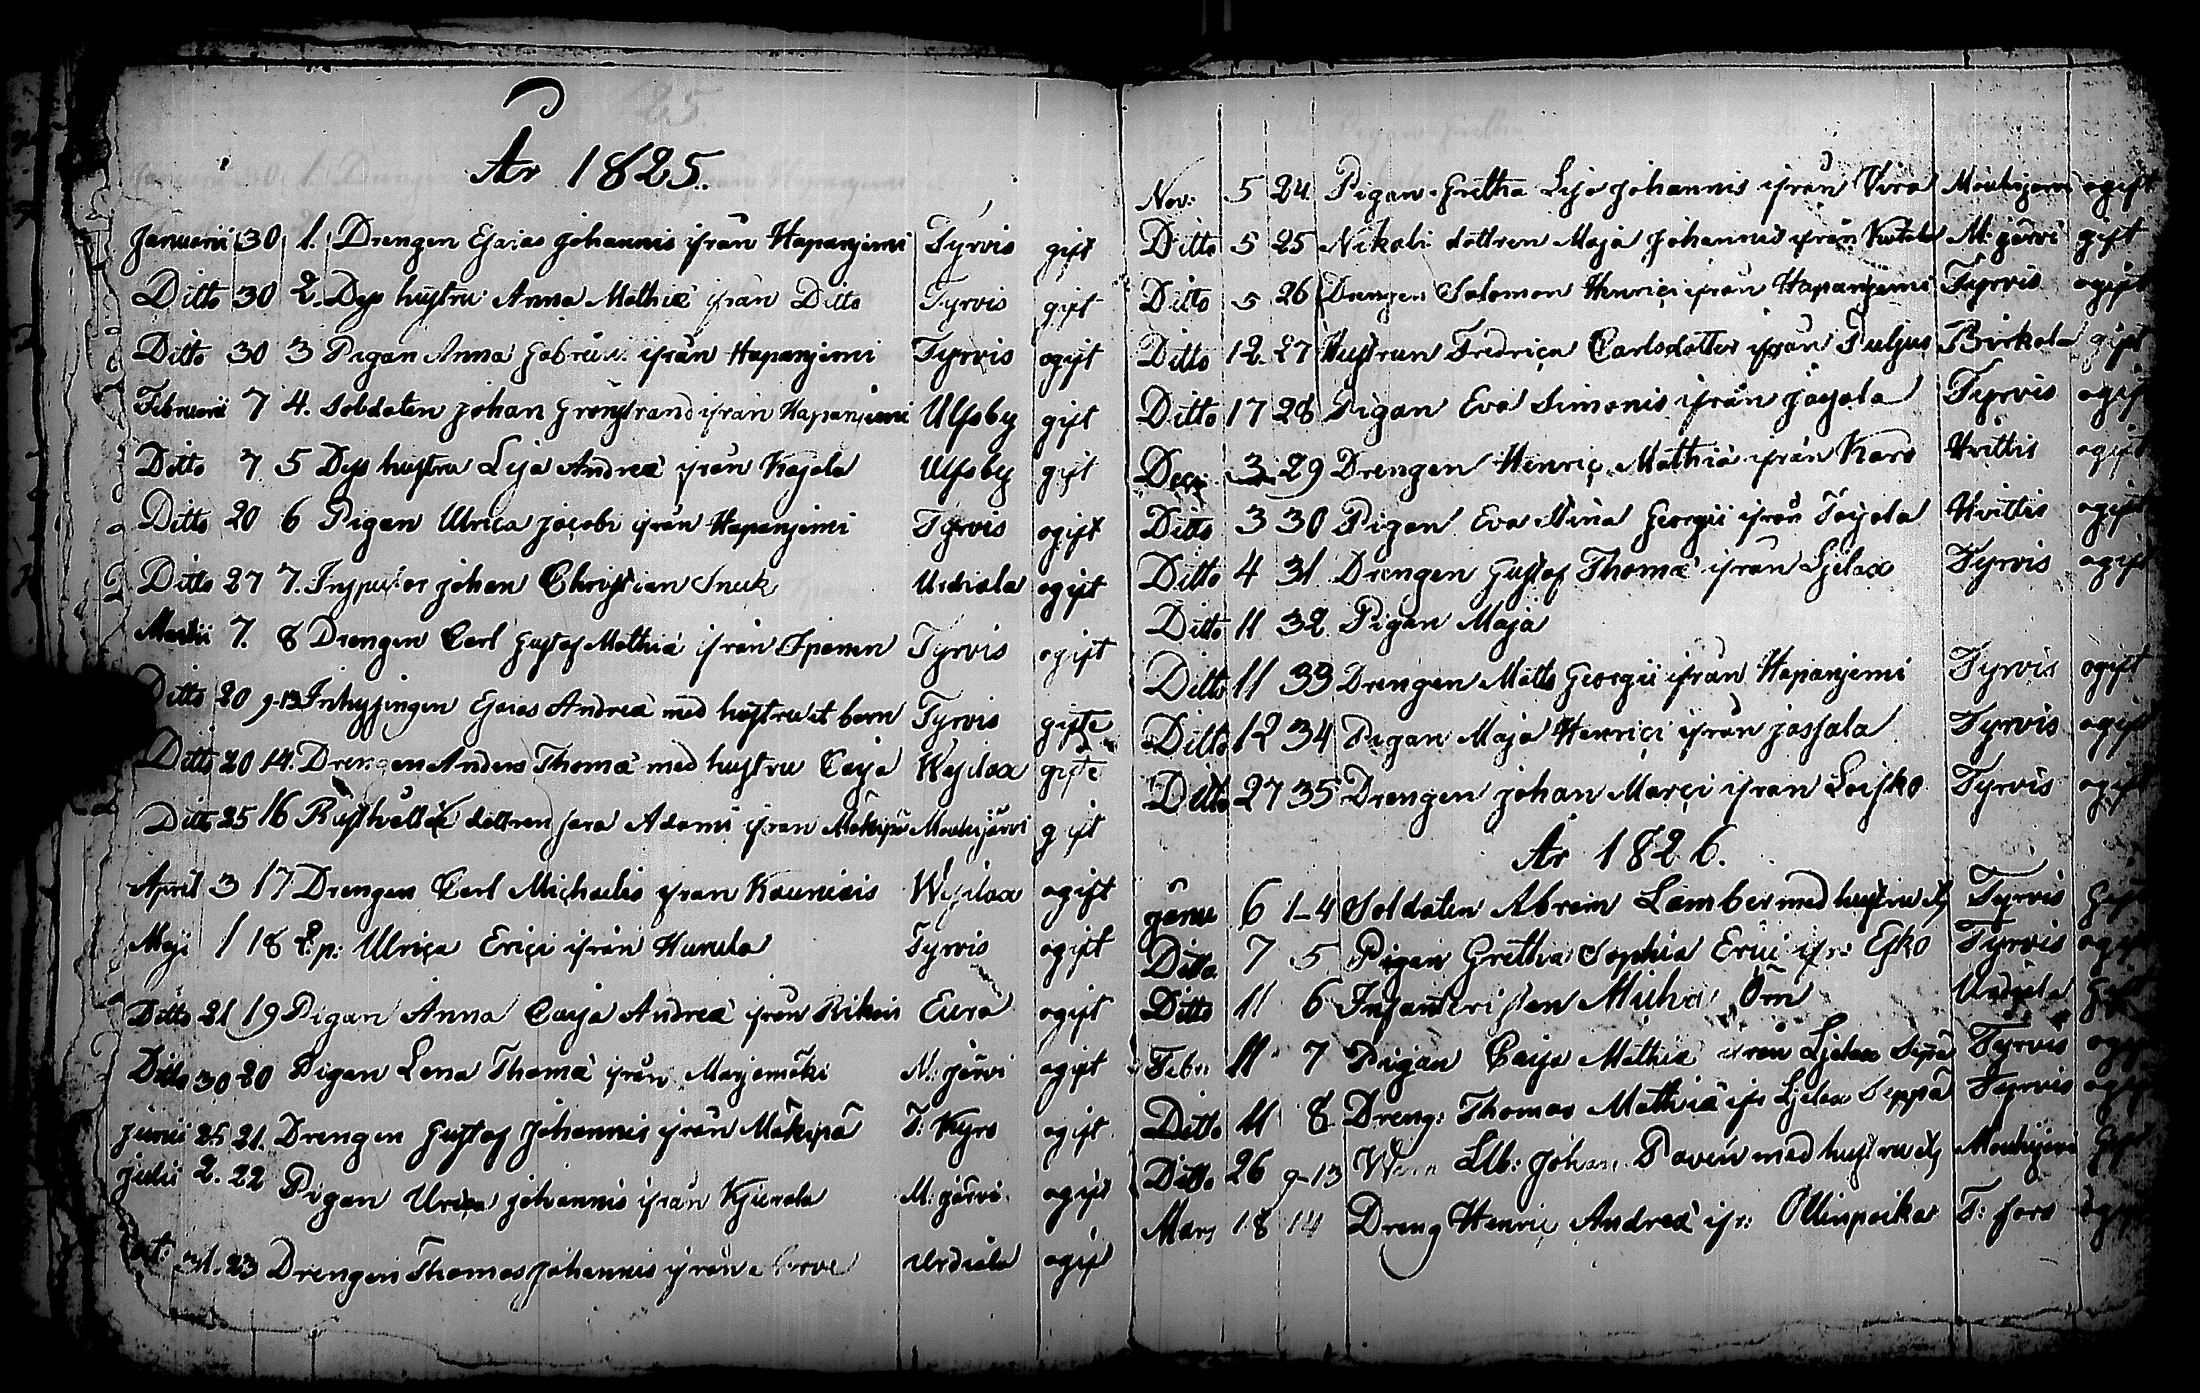 År 1825.
Januarii 30 1. Drengen Esaias Johannis ifrån Hapanjemi Tyrvis gift
Ditto 30 2. Dess hustru Anna Mathiæ ifrån Ditto Tyrvis gift
Ditto 30 3 Pigan Anna ifrån Hapanjemi Tyrvis ogift
Februarii 7 4. Soldaten Johan Grönstrand ifrån Hapanjemi Ulfsby gift
Ditto 7 5 Dess hustru Lisa Andreæ ifrån Kajala Ulfsby gift
Ditto 20 6 Pigan Ulrica Jacobi ifrån Hapanjemi Tyrvis ogift
Ditto 27 7. Inspector Johan Christian Urdiala ogift
Martii 7. 8 Drengen Carl Gustaf Mathiæ ifrån Tyrvis ogift
Ditto 20 9-13 Inhysingen Esaias Andreæ med hustru et barn Tyrvis gifte
Ditto 20 14. Drengen Anders Thomæ med hustru Caisa Wesilax gifte
Ditto 25 16 dottren Sara Adami ifrån Mäkipä Mouhijärvi gift
April 3 17 Drengen Carl Michaelis ifrån Kauniais Wesilax ogift
Maji 1 18 E.p: Ulrica Erici ifrån Hunula Tyrvis ogift
Ditto 21 19 Pigan Anna Caisa Andreæ ifrån Eura ogift
Ditto 30 20 Pigan Lena Thomæ ifrån Marjamäki M: järvi ogift
Junii 25 21. Drengen Gustaf Johannis ifrån Mäkipä T: Kyro ogift
Julii 2. 22 Pigan Johannis ifrån M: järvi ogift
31. 23 Drengen Thomas Johannis ifrån Urdiala ogift
Nov: 5 24. Pigan Gretha Lisa Johannis ifrån Mouhijärvi ogift
Ditto 5 25 dottren Maja Johannis ifrån M: järvi gift
Ditto 5 26 Drengen Salomon Henrici ifrån Hapanjemi Tyrvis ogift
Ditto 12. 27 Hustrun Fredrica Carlsdotter ifrån Puljus Birkala gift
Ditto 17 28 Pigan Eva Simonis ifrån Tyrvis ogift
Dec: 3 29 Drengen Henric Mathiæ ifrån Karo Hvittis ogift
Ditto 3 30 Pigan Eva Stina Georgii ifrån Hvittis ogift
Ditto 4 31 Drengen Gustaf Thomæ ifrån Ljelax Tyrvis ogift
Ditto 11 32. Pigan Maja
Ditto 11 33 Drengen Matts Georgii ifrån Hapanjemi Tyrvis ogift
Ditto 12 34 Pigan Maja Henrici ifrån Jassala Tyrvis ogift
Ditto 27 35 Drengen Johan Marci ifrån Loisko Tyrvis ogift
År 1826.
Janu 6 1-4 Soldaten Abram Lamber med hustru Tyrvis Gift
Ditto 7 5 Pigan Gretha Sophia Erici ifr: Esko Tyrvis ogift
Ditto 11 6 Infanteristen Örn Urdiala Gift
Febr: 11 7 Pigan Caisa Mathiæ ifrån Ljelax Seppä Tyrvis ogift
Ditto 11 8 Dreng: Thomas Mathiæ ifr Ljelax Seppä Tyrvis ogift
Ditto 26 9-13 Johan med hustru Mouhijärvi Gift
Mars 18 14 Dreng Henric Andreæ ifr: Ollinpoika T: fors ogift